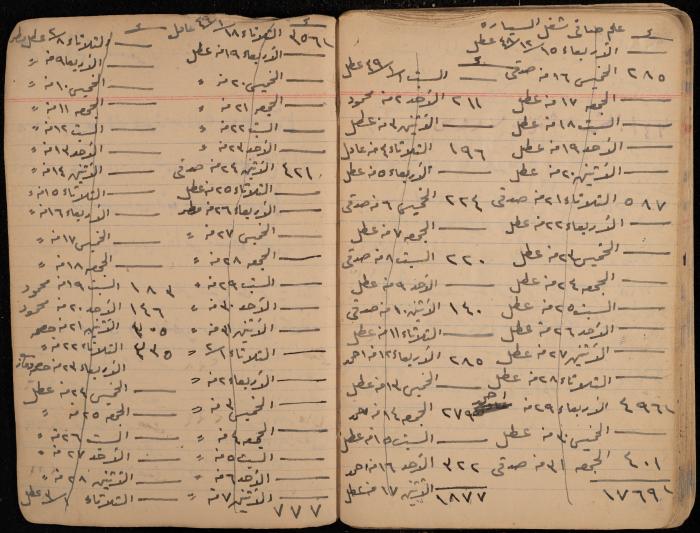 علم حياتي شغل السيارة
الأربعاء ١٥/١٢/٤٨ عطل
٢٨٥ الخميس ١٦ منه صدقي
الجمعه ١٧ منه عطل
السبت ١٨ منه عطل
الأحد ١٩ منه عطل
الأثنين ٢٠ منه عطل
٥٨٧ الثلاثاء ٢١ منه صدقي
الأربعاء ٢٢ منه عطل
الخميس ٢٣ منه عطل
الجمعه ٢٤ منه عطل
السبت ٢٥ منه عطل
الأحد ٢٦ منه عطل
الأثنين ٢٧ منه عطل
الثلاثاء ٢٨ منه عطل
٤٩٦ الأربعاء ٢٩ منه احمد
الخميس ٣٠ منه عطل
٤٠١ الجمعه ٣١ منه صدقي
١٧٦٩
السبت ١/١/٤٩ عطل
٢١١ الأحد ٢ منه محمود
الأثنين ٣ منه عطل
١٩٦ الثلاثاء ٤ منه عادل
الأربعاء ٥ منه عطل
٢٢٤ الخميس ٦ منه صدقي
الجمعه ٧ منه عطل
٢٢٠ السبت ٨ منه صدقي
الأحد ٩ منه عطل
١٤٠ الأثنين ١٠ منه صدقي
الثلاثاء ١١ منه عطل
٢٨٥ الأربعاء ١٢ منه احمد
الخميس ١٣ منه عطل
٢٧٩ الجمعه ١٤ منه احمد
السبت ١٥ منه عطل
٣٢٢ الأحد ١٦ منه احمد
الأثنين ١٧ منه عطل
١٨٧٧
٣٥٦ الثلاثاء ١٨/١/٤٩ عادل
الأربعاء ١٩ منه عطل
الخميس ٢٠ منه "
الجمعه ٢١ منه "
السبت ٢٢ منه "
الأحد ٢٣ منه "
٤٢١ الأثنين ٢٤ منه صدقي
الثلاثاء ٢٥ منه عطل
الأربعاء ٢٦ منه عطل
الخميس ٢٧ منه "
الجمعه ٢٨ منه "
السبت ٢٩ منه "
الأحد ٣٠ منه "
الأثنين ٣١ منه "
الثلاثاء ١/٢ "
الأربعاء ٢ منه "
الخميس ٣ منه "
الجمعه ٤ منه "
السبت ٥ منه "
الأحد ٦ منه "
الأثنين ٧ منه "
٧٧٧
الثلاثاء ٨/٢ عطل
الأربعاء ٩ منه "
الخميس ١٠ منه "
الجمعه ١١ منه "
السبت ١٢ منه "
الأحد ١٣ منه "
الأثنين ١٤ منه "
الثلاثاء ١٥ منه "
الأربعاء ١٦ منه "
الخميس ١٧ منه "
الجمعه ١٨ منه "
١٨٣ السبت ١٩ منه محمود
١٤٦ الأحد ٢٠ منه محمود
٣٠٥ الأثنين ٢١ منه
٣٣٥ الثلاثاء ٢٢ منه "
الأربعاء ٢٣ منه
الخميس ٢٤ منه عطل
الجمعه ٢٥ منه "
السبت ٢٦ منه "
الأحد ٢٧ منه "
الأثنين ٢٨ منه "
الثلاثاء ١/٣ عطل